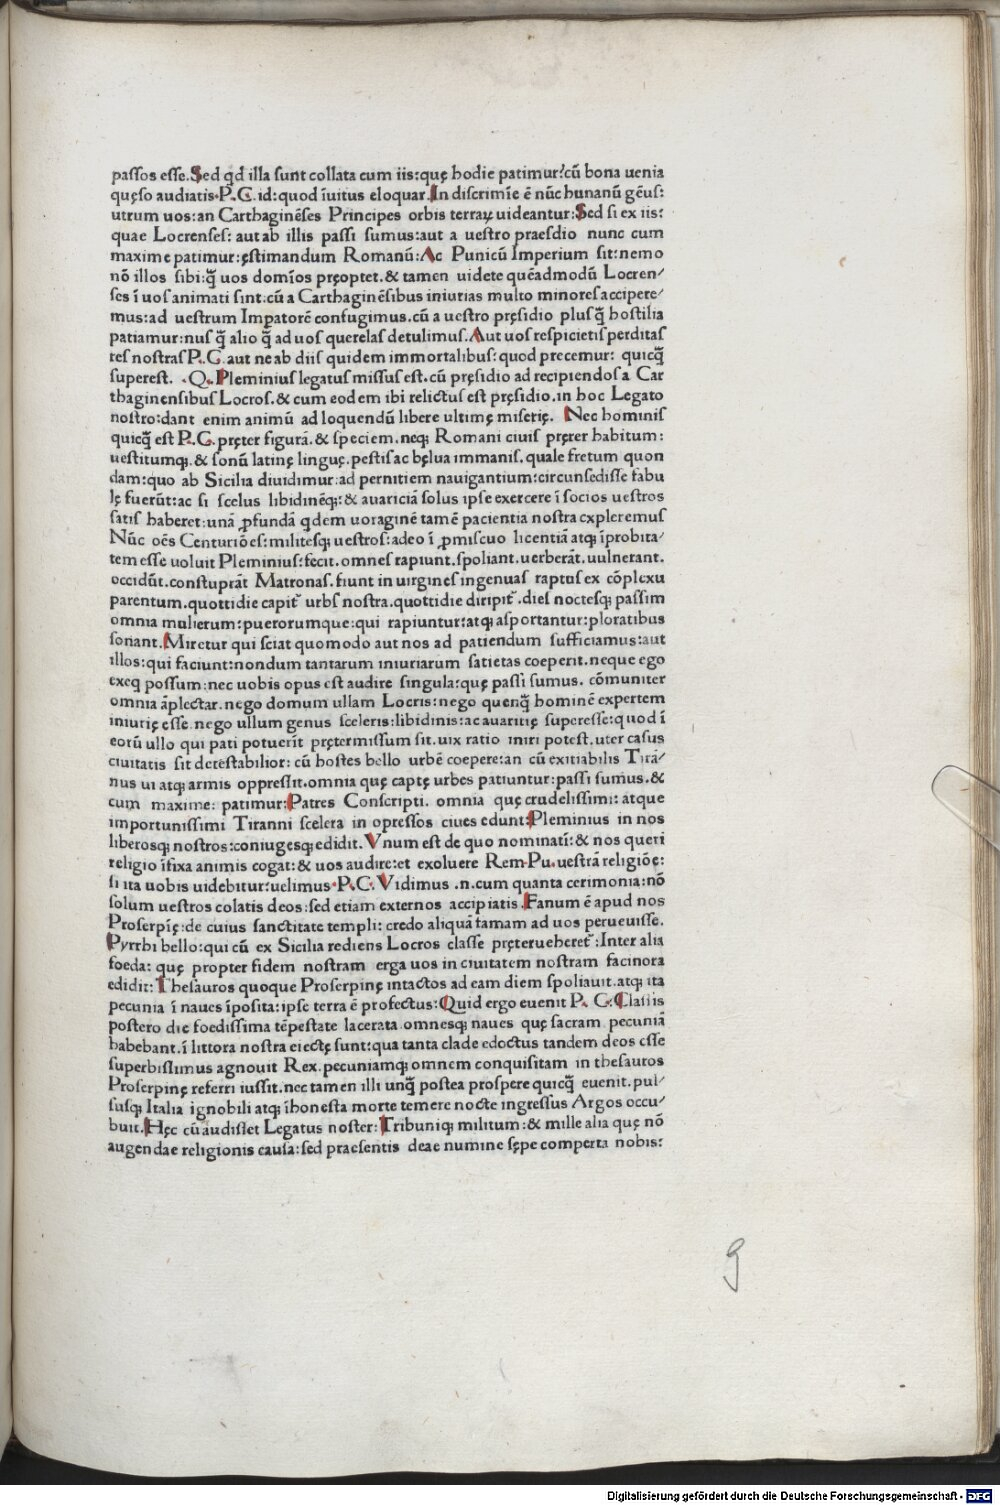 passos esse. Sed qd illa sunt collata cum iis: quę hodie patimur? cū bona uenia
quęso audiatis. P. C. id: quod iuitus eloquar. In discrimīe ē nūc humanū gēus:
utrum uos: an Carthaginēses Principes orbis terraꝝ uideantur: Sed si ex iis:
quae Locrenses: aut ab illis passi sumus: aut a uestro praesdio nunc cum
maxime patimur: ęstimandum Romanū: Ac Punicū Imperium sit: nemo
nō illos sibi: q̄ uos domīos pręoptet. & tamen uidete quēadmodū Locren⸗
ses ī uos animati sint. cū a Carthaginēsibus iniurias multo minores accipere⸗
mus: ad uestrum Impatorē confugimus. cū a uestro pręsidio plusq̄ hostilia
patiamur: nusq̄ alio q̄ ad uos querelas detulimus. Aut uos respicietis perditas
res nostras P. C. aut ne ab diis quidem immortalibus: quod precemur: quicq̄
superest. .Q. Pleminius legatus missus est. cū pręsidio ad recipiendos a Car
thaginensibus Locros. & cum eodem ibi relictus est pręsidio. in hoc Legato
nostro: dant enim animū ad loquendū libere ultimę miserię. Nec hominis
quicq̄ est P. C. pręter figurā. & speciem. neq; Romani ciuis pręrer habitum:
uestitumq;. & sonū latinę linguę. pestis ac bęlua immanis. quale fretum quon
dam: quo ab Sicilia diuidimur: ad pernitiem nauigantium: circunsedisse fabu
lę fuerūt: ac si scelus libidinēq;: & auariciā solus ipse exercere ī socios uestros
satis haberet: unā ꝓfundā qdem uoraginē tamē pacientia nostra expleremus
Nūc oēs Centuriōes: militesq; uestros: adeo ī ꝓmiscuo licentiā atq; īprobita⸗
tem esse uoluit Pleminius: fecit. omnes rapiunt. spoliant. uerberāt. uulnerant.
occidūt. constuprāt Matronas. fiunt in uirgines ingenuas raptus ex cōplexu
parentum. quottidie capit᷑ urbs nostra. quottidie diripit᷑. dies noctesq; passim
omnia mulierum: puerorumque: qui rapiuntur: atq; asportantur: ploratibus
sonant. Miretur qui sciat quomodo aut nos ad patiendum sufficiamus: aut
illos: qui faciunt: nondum tantarum iniuriarum satietas coeperit. neque ego
exeq possum: nec uobis opus est audire singula: quę passi sumus. cōmuniter
omnia āplectar. nego domum ullam Locris: nego quenq̄ hominē expertem
iniurię esse. nego ullum genus sceleris: libidinis: ac auaritię superesse: quod ī
eorū ullo qui pati potuerīt prętermissum sit. uix ratio iniri potest. uter casus
ciuitatis sit detestabilior: cū hostes bello urbē coepere: an cū exitiabilis Tirā⸗
nus ui atq; armis oppressit. omnia quę captę urbes patiuntur: passi sumus. &
cum maxime: patimur: Patres Conscripti. omnia quę crudelissimi: atque
importunissimi Tiranni scelera in opressos ciues edunt: Pleminius in nos
liberosq; nostros: coniugesq; edidit. Vnum est de quo nominatī: & nos queri
religio īfixa animis cogat: & uos audire: et exoluere Rem-Pu. uestrā religiōe:
si ita uobis uidebitur: uelimus. P. C. Vidimus .n. cum quanta cerimonia: nō
solum uestros colatis deos: sed etiam externos accipiatis. Fanum ē apud nos
Proserpię: de cuius sanctitate templi: credo aliquā famam ad uos perueuisse.
Pyrrhi bello: qui cū ex Sicilia rediens Locros classe pręterueheret᷑: Inter alia
foeda: quę propter fidem nostram erga uos in ciuitatem nostram facinora
edidit: Thesauros quoque Proserpinę intactos ad eam diem spoliauit. atq; ita
pecunia ī naues īposita: ipse terra ē profectus: Quid ergo euenit P. C. Classis
postero die foedissima tēpestate lacerata omnesq; naues quę sacram pecuniā
habebant. ī littora nostra eiectę sunt: qua tanta clade edoctus tandem deos esse
superbissimus agnouit Rex. pecuniamq; omnem conquisitam in thesauros
Proserpinę referri iussit. nec tamen illi unq̄ postea prospere quicq̄ euenit. pul⸗
susq; Italia ignobili atq; īhonesta morte temere nocte ingressus Argos occu⸗
buit. Hęc cū audisset Legatus noster: Tribuniq; militum: & mille alia quę nō
augendae religionis causa: sed praesentis deae numine sępe comperta nobis:
9
Digitalisierung gefördert durch die Deutsche Forschungsgemeinschaft - DFG